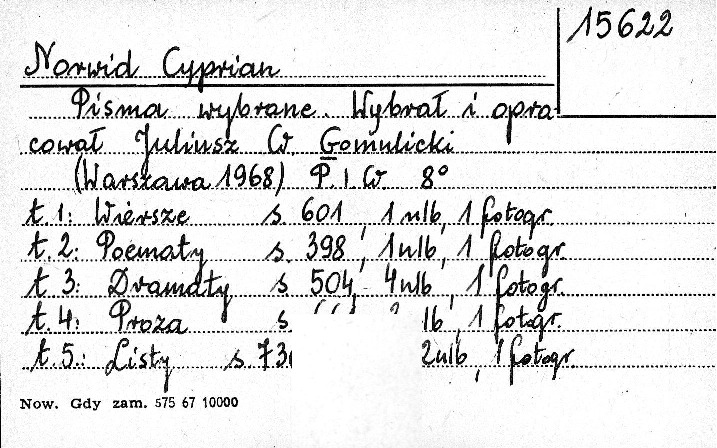 15622
Norwid Cyprian
Pisma wybrane. Wybrał i opra-
cował Juliusz W. Gomulicki
(Warszawa 1968) P.I.W 8°
t. 1: Wiersze s. 601, 1 nlb, 1 fotogr.
t. 2: Poematy s. 398, 1 nlb, 1 fotogr.
t. 3: Dramaty s 504, 4 nlb, 1 fotogr.
t. 4: Proza s lb, 1 fotogr.
t. 5.: Listy s. 73 2 nlb, 1 fotogr.
Now. Gdy zam. 575 67 10000